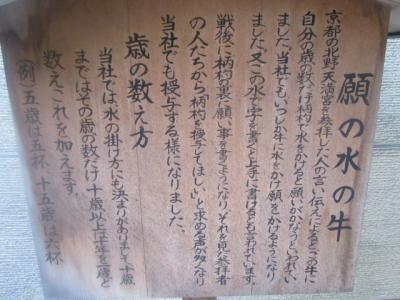 願の水の牛
京都の北野天満宮を参拝した人の言い伝えによるとこの牛に
自分の歳の数だけ柄杓で水をかけると願いがかなうといわれてい
ました。当社でもいつしか牛に水をかけ願をかけるようになり
ました。又この水で字を書くと上手に書けるとも言われています。
戦後に柄杓の裏に願い事を書くようになり、それを見た参拝者
の人たちから柄杓を授与してほしい」と求める声が多くなり
当社でも授与する様になりました。
歳の数え方
当社では、水の掛け方にも決まりがありまして、十歳
まではその歳の数だけ、十歳以上は十を一歳と
数えこれを加えます。
(例)五歳は五杯、十五歳は六杯